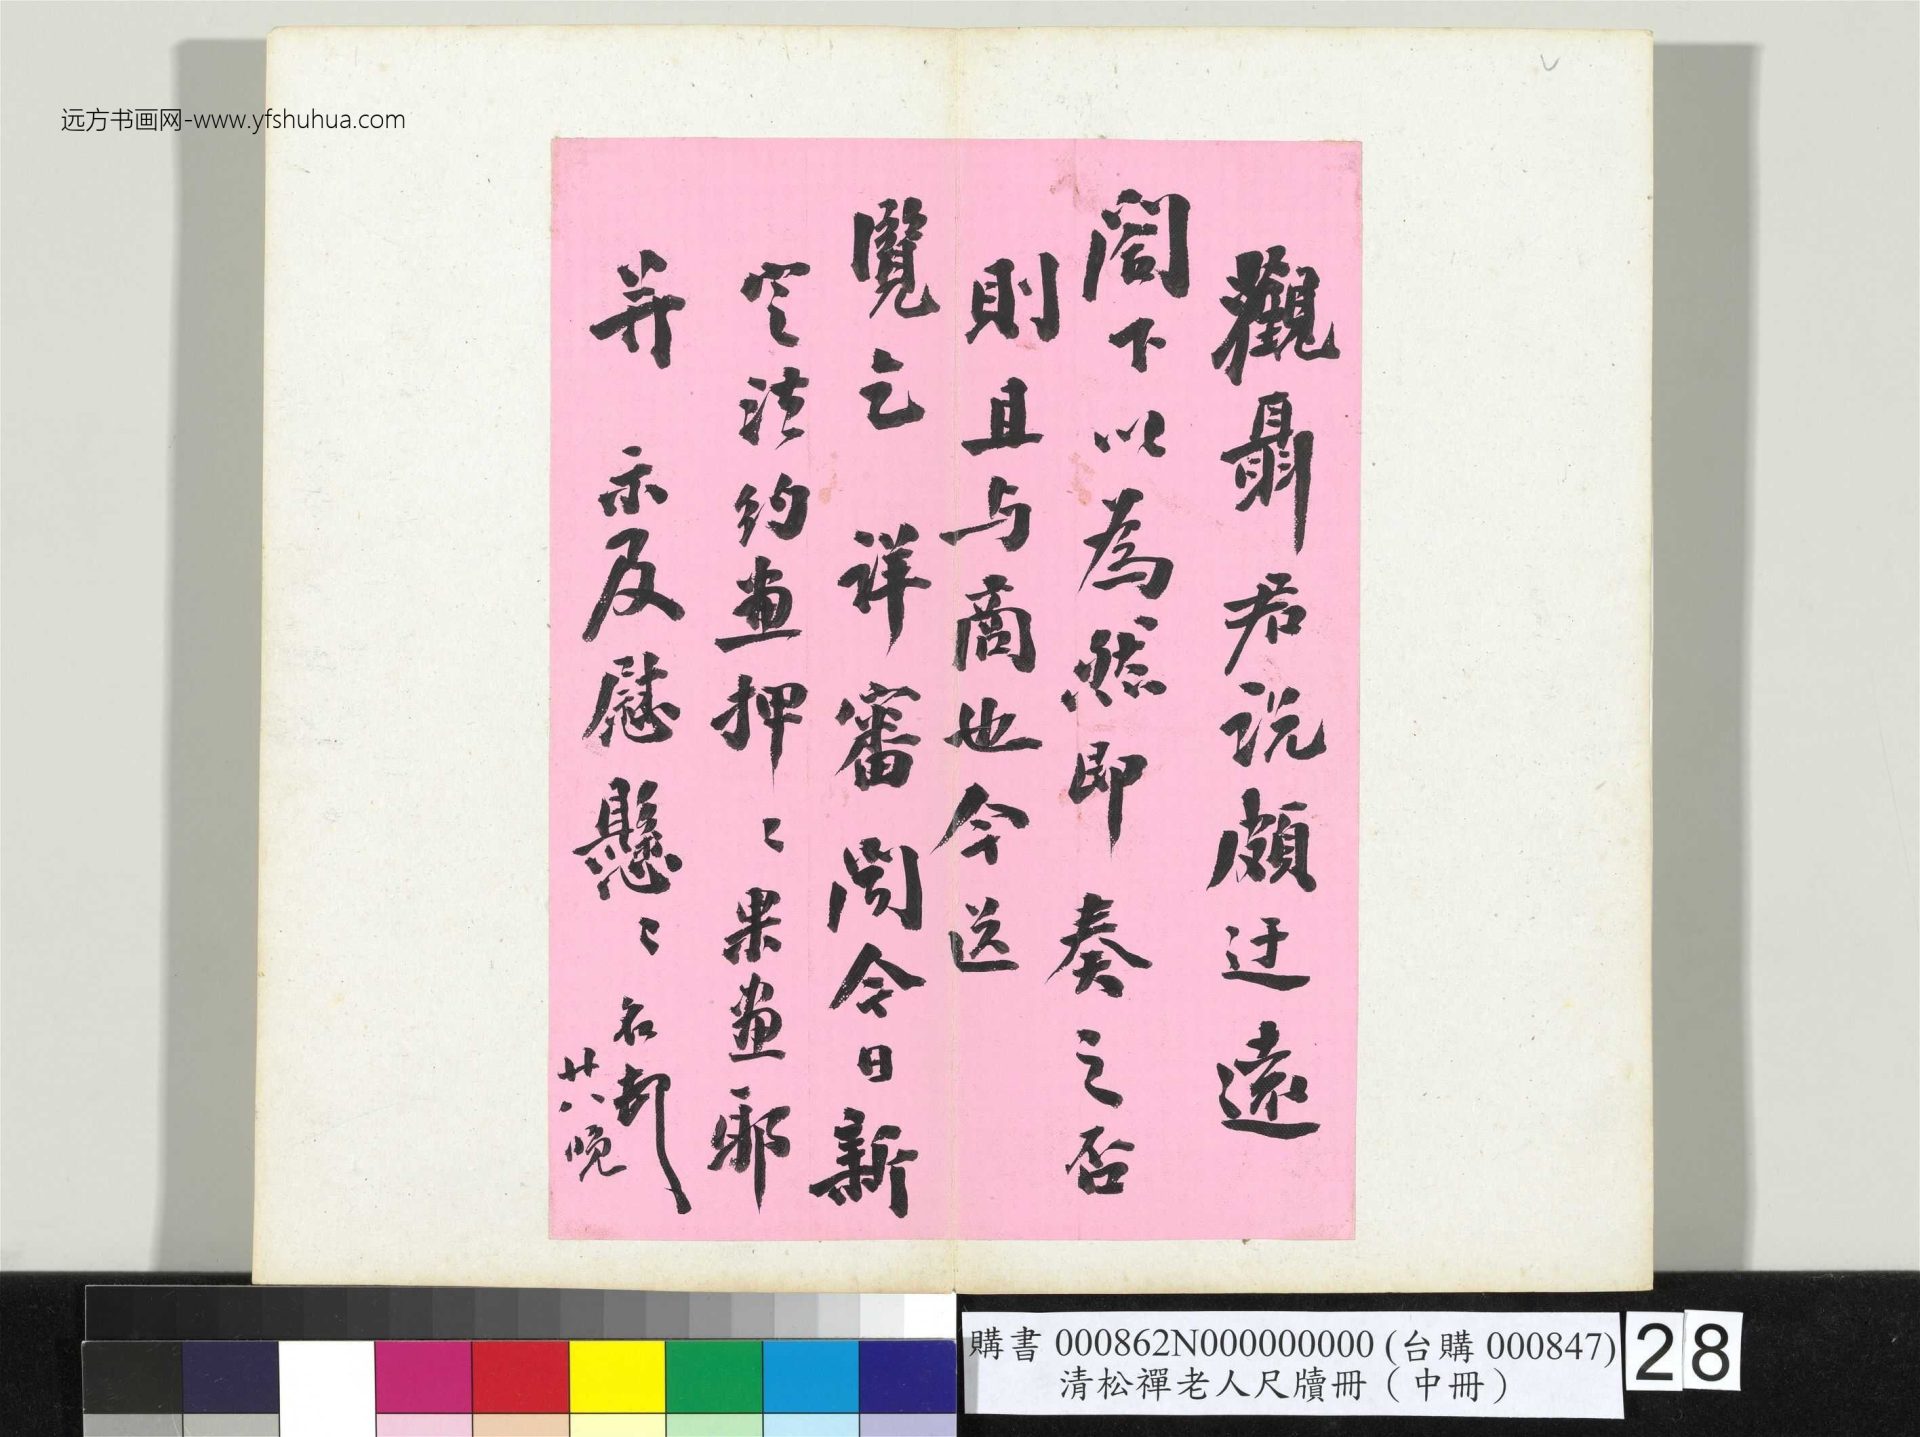 远方书画网-www.yfshuhua.com
觀聶君说頗迂遠
閤下以為然即奏之否
則且与商也今送
覽乞详審聞今日新
定法約畫押〻果畫耶
并示及慰懸〻名
廿八晚
購書 000862N000000000 (台購 000847)
清松禪老人尺牘冊（中冊）
28